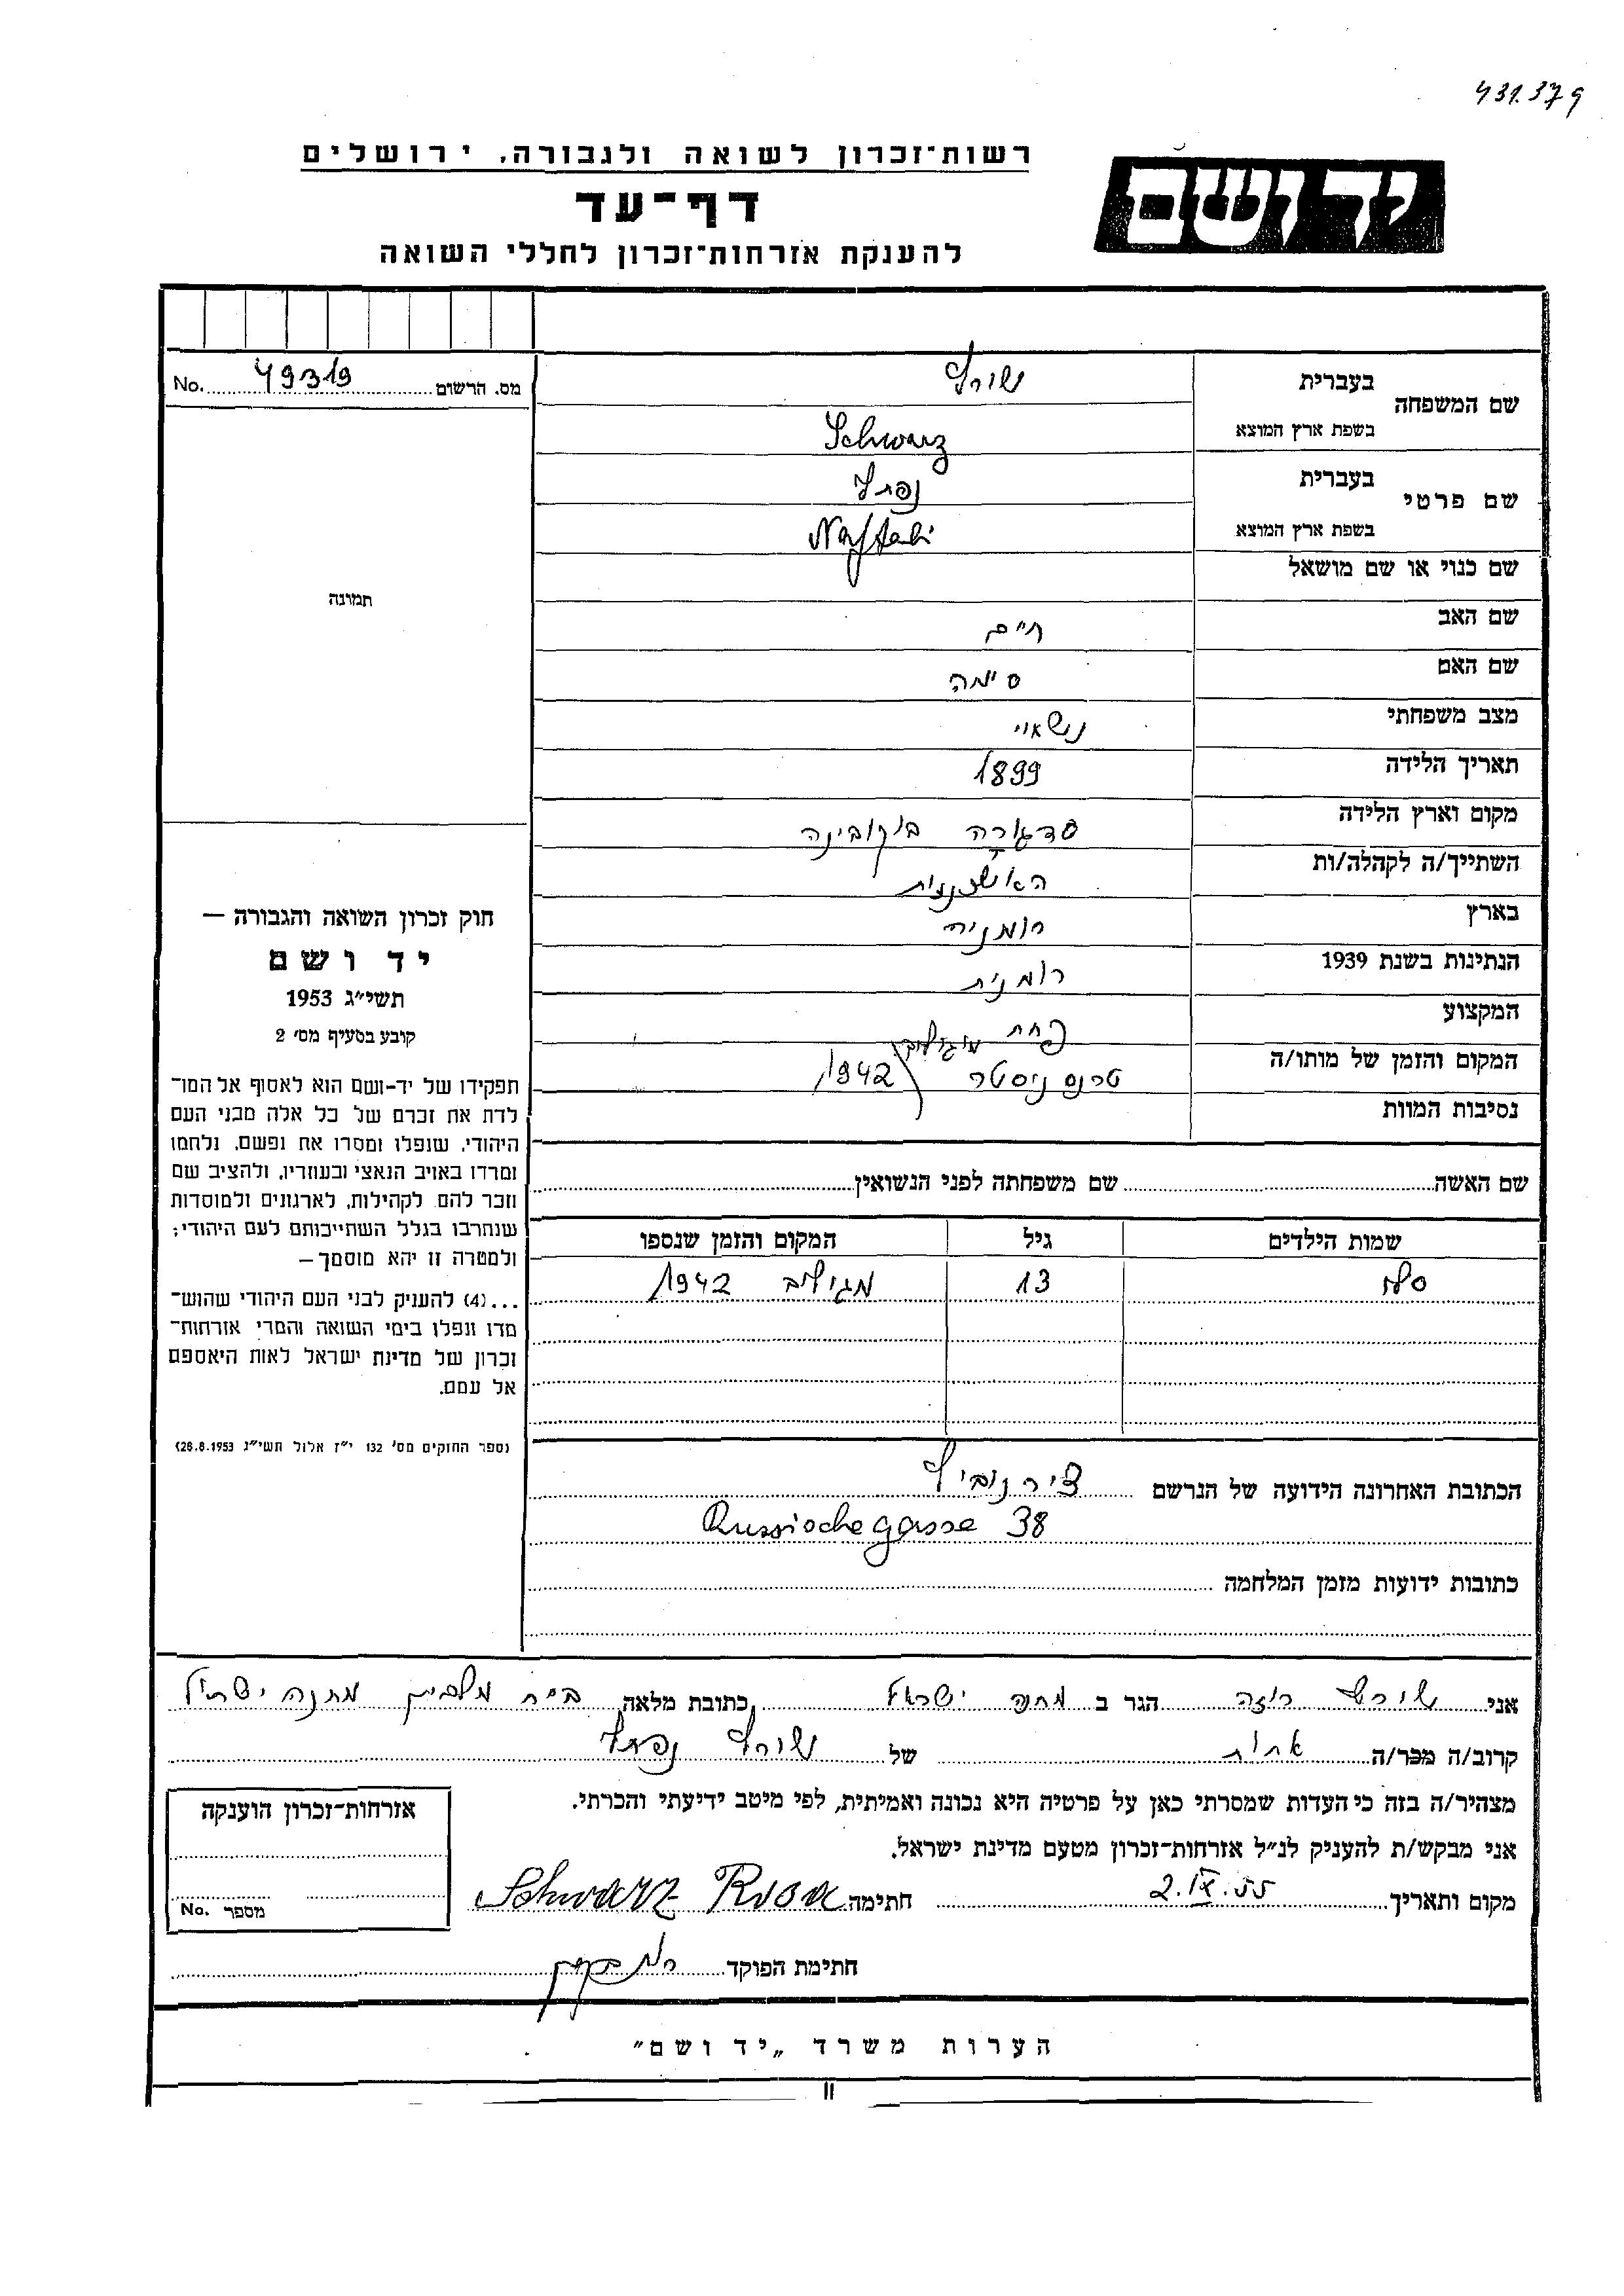 431.379
רשות־זכרון לשואה ולגבורה, ירושלים
יד ושם
דף־עד
להענקת אזרחות־זכרון לחללי השואה
מס. הרשום 49319 No.
שם המשפחה בעברית שורץ
בשפת ארץ המוצא Schwarz
שם פרטי בעברית נפתלי
בשפת ארץ המוצא Naftali
שם כנוי או שם מושאל
תמונה
שם האב חיים
שם האם סימה
מצב משפחתי נישאוי
תאריך הלידה 1899
מקום וארץ הלידה סדגורה בוקובינה
השתייך/ה לקהלה/ות האשכנזית
בארץ רומניה
הנתינות בשנת 1939 רומנית
המקצוע פחח
המקום והזמן של מותו/ה מוגילוב טרנסניסטר 1942
נסיבות המוות
חוק זכרון השואה והגבורה —
יד ושם
תשי״ג 1953
קובע בסעיף מס׳ 2
תפקידו של יד-ושם הוא לאסוף אל המו־
לדת את זכרם של כל אלה מבני העם
היהודי, שנפלו ומסרו את נפשם, נלחמו
ומרדו באויב הנאצי ובעוזריו, ולהציב שם
וזכר להם לקהילות, לארגונים ולמוסדות
שנחרבו בגלל השתייכותם לעם היהודי;
ולמטרה זו יהא מוסמך —
...(4) להעניק לבני העם היהודי שהוש־
מדו ונפלו בימי השואה והמרי אזרחות־
זכרון של מדינת ישראל לאות היאספם
אל עמם.
(ספר החוקים מס׳ 132 י״ז אלול תשי״ג 28.8.1953)
שם האשה שם משפחתה לפני הנשואין
שמות הילדים גיל המקום והזמן שנספו
סלו 13 מגילוב 1942
הכתובת האחרונה הידועה של הנרשם צירנוביץ
Russischegasse 38
כתובות ידועות מזמן המלחמה
אני שורץ רוזה הגר ב מחנה ישראל כתובת מלאה, מחנה ישראל
קרוב/ה מכר/ה אחות של שורץ נפתלי
מצהיר/ה בזה כי העדות שמסרתי כאן על פרטיה היא נכונה ואמיתית, לפי מיטב ידיעתי והכרתי.
אני מבקש/ת להעניק לנ״ל אזרחות־זכרון מטעם מדינת ישראל.
מקום ותאריך 2.IX.55 חתימה Schwarz Rosa
אזרחות־זכרון הוענקה
מספר No.
חתימת הפוקד
הערות משרד „יד ושם״
II